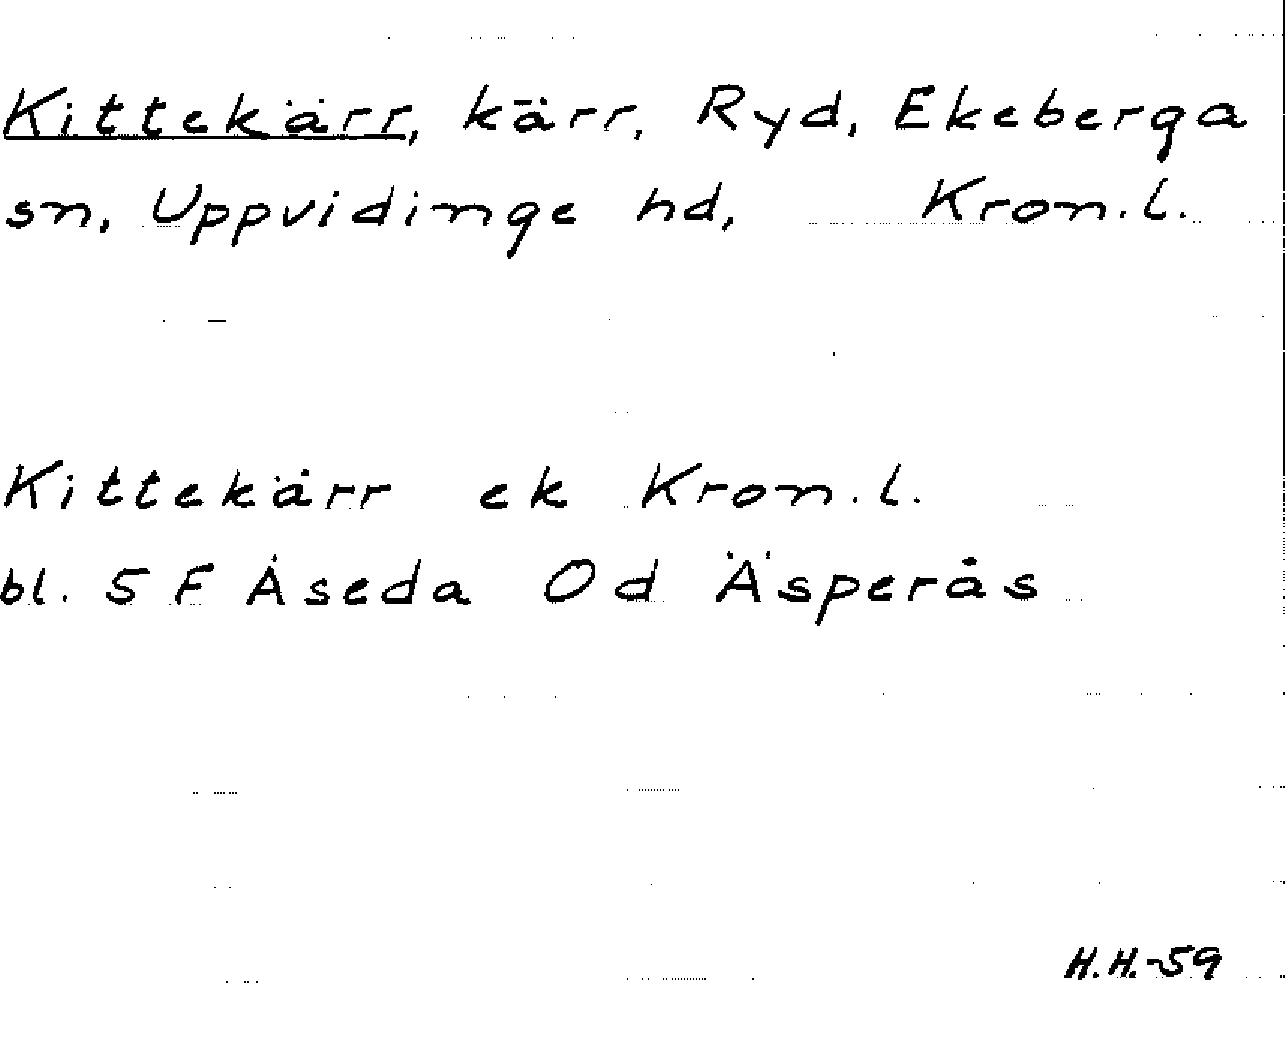 Kittekärr, kärr, Ryd, Ekeberga
sn, Uppvidinge hd, Kron.l.
Kittekärr ek Kron.l.
bl. 5 F Åseda Od Äsperås
H.H.-59